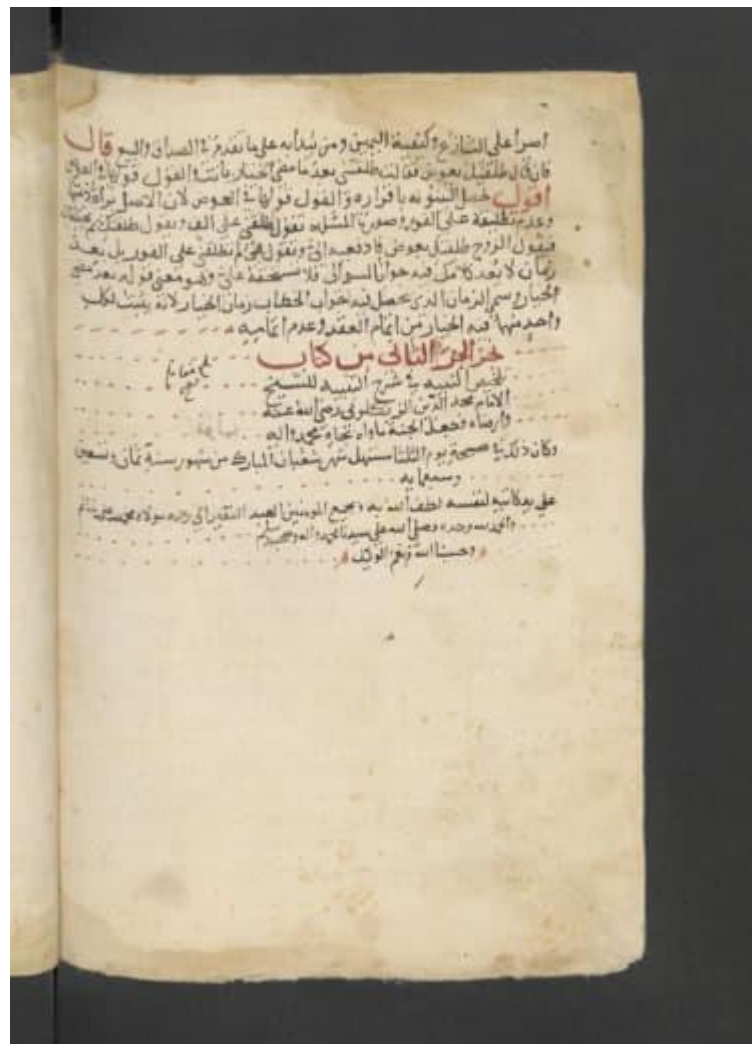 اصرا على التنازع وكيفية اليمين ومن يبدأ به على ما تقدم في الصداق والبيع قال
فان قال طلقتك بعوض فقالت طلقتني بعد ما مضى الخيار بانت والقول قولها في العوض
اقول تحصل البينونة باقراره والقول قولها في العوض لان الاصل براءة ذمتها
وعدم تطليقه على الفور وصورة المسئلة تقول طلقني على الف وتقول طلقتك
فيقول الزوج طلقتك بعوض فادفعه الي وتقول هي لم تطلقني على الفور بل بعد
زمان لا يعد كلامك فيه جوابا لسوالي فلا تستحقه علي وهو معنى قوله بعد مضي
الخيار وسمي الزمان الذي يحصل فيه جواب الخطاب زمان الخيار لانه يثبت لكل
واحد منهما فيه الخيار من اتمام العقد وعدم اتمامه
نجز الجزء الثاني من كتاب
التنبيه في شرح التنبيه للشيخ
الامام مجد الدين الزنكلوني رضي الله عنه
وارضاه وجعل الجنة ماواه بمحمد واله
وكان ذلك في صبيحة يوم الثلثا مستهل شهر شعبان المبارك من شهور سنة ثمان وتسعين
وسبعمايه
على يد كاتبه لنفسه لطف الله به وبجميع المومنين العبد الفقير الى
والحمد لله وحده وصلى الله على سيدنا محمد واله وصحبه وسلم
وحسبنا الله ونعم الوكيل